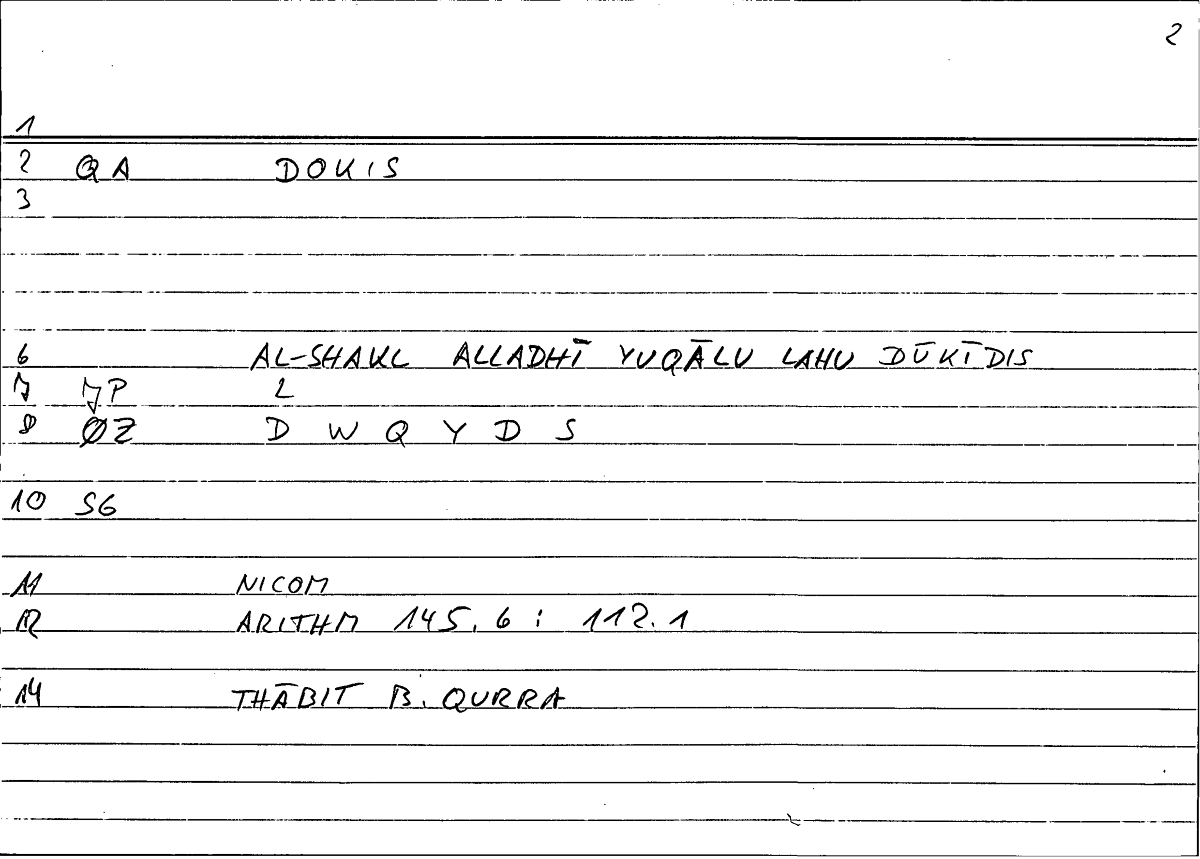 2
1
2 QA DOKIS
3
6 AL-SHAKL ALLADHĪ YUQĀLU LAHU DŪKĪDIS
7 7P 2
8 ØZ D W Q Y D S
10 SG
11 NICOM
12 ARITHM 145.6 : 112.1
14 THĀBIT B. QURRA